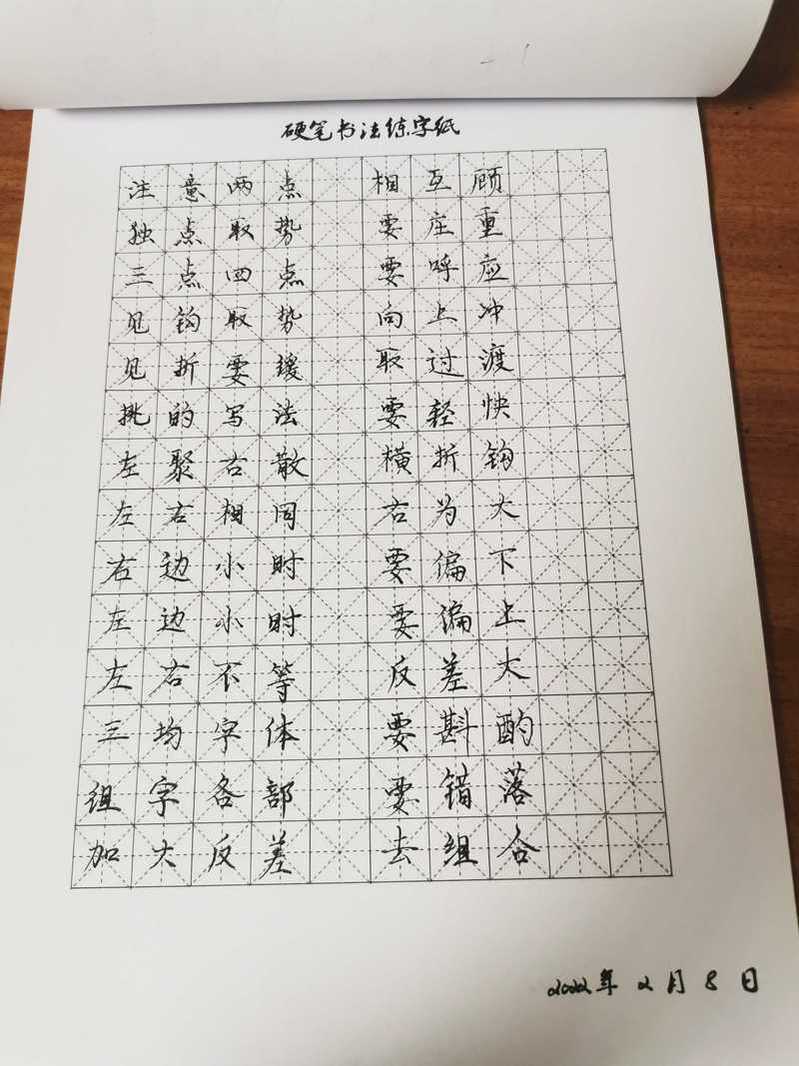 硬笔书法练字纸
注意两点 相互顾
独点取势 要庄重
三点四点 要呼应
见钩取势 向上冲
见折要缓 取过渡
挑的写法 要轻快
左聚右散 横折钩
左右相同 右为大
右边小时 要偏下
左边小时 要偏上
左右不等 反差大
三均字体 要斟酌
组字各部 要错落
加大反差 去组合
2022年2月8日